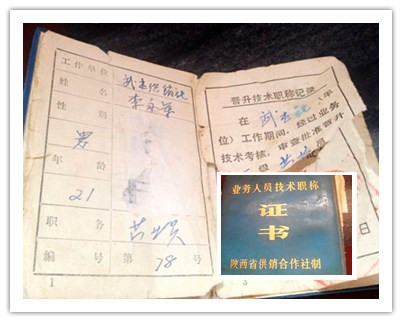 工作单位
供销社
姓名
李永
性别 男
年龄 21
职务
编号 第 78 号
1
晋升技术职称记录
在 单
位)工作期间,经过业务
技术考核,审查批准晋升
级 员
日
3
业务人员技术职称
证
书
陕西省供销合作社制